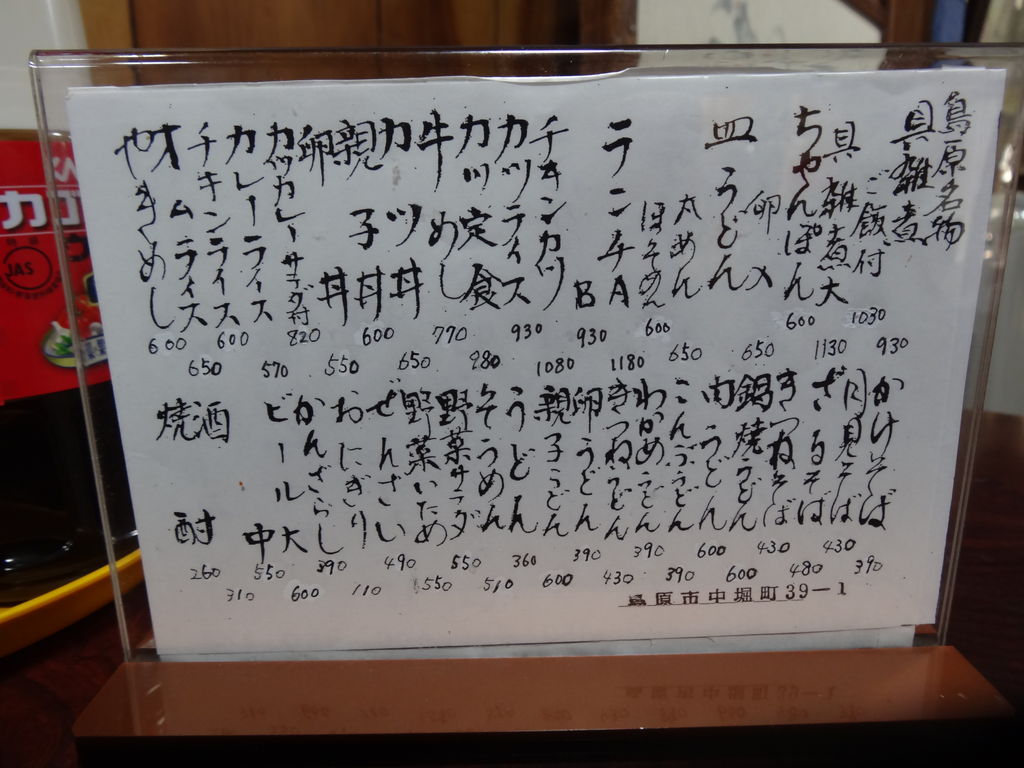 島原名物
具雑煮 930
ご飯付 1030
具雑煮大 1130
ちゃんぽん 600
卵入 650
皿うどん
太めん 650
ほそめん 600
ランチA 1180
B 930
チキンカツ 1080
カツライス 930
カツ定食 980
牛めし 770
カツ丼 650
親子丼 600
卵丼 550
カツカレーサラダ付 820
カレーライス 570
チキンライス 600
オムライス 650
やきめし 600
かけそば 390
月見そば 430
ざるそば 480
きつねそば 430
鍋焼うどん 600
肉うどん 600
こんぶうどん 390
わかめうどん 390
きつねうどん 430
卵うどん 390
親子うどん 600
うどん 360
そうめん 510
野菜サラダ 550
野菜いため 550
ぜんざい 490
おにぎり 110
かんざらし 390
ビール大 600
中 550
酒 310
焼酎 260
島原市中堀町39-1
JAS